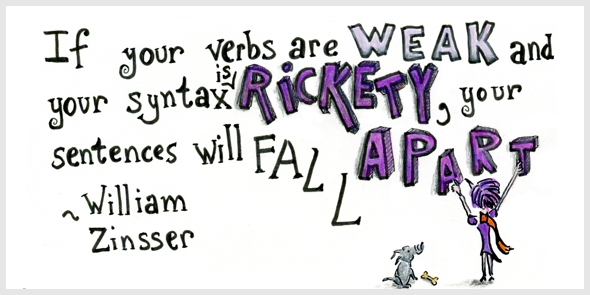 If your verbs are WEAK and
your syntax is RICKETY, your
sentences will FALL APART
~ William
Zinsser